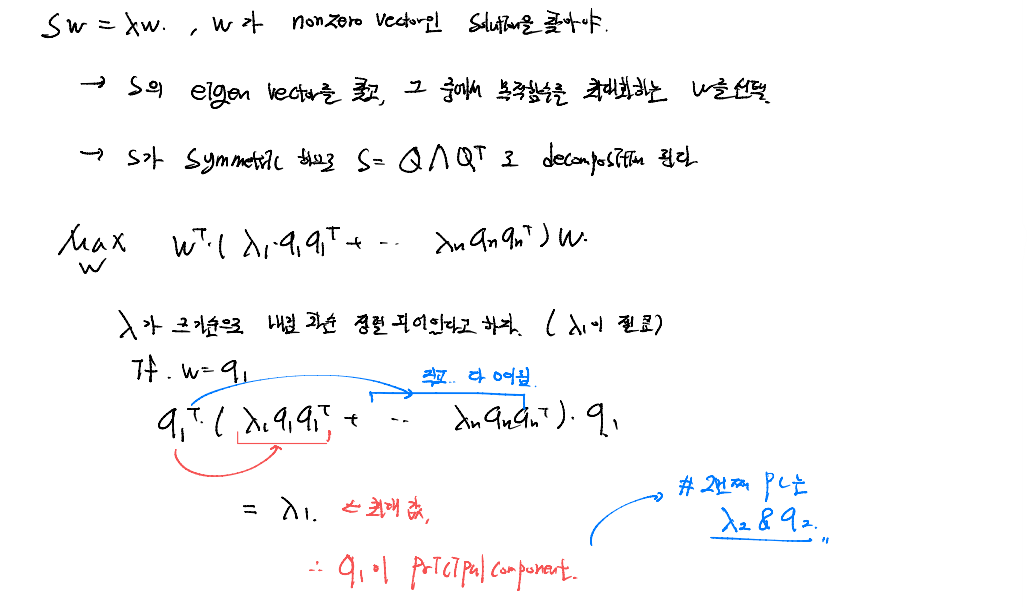 Sw = λw. , w가 nonzero vector인 solution을 찾아야.
→ S의 eigen vector를 찾고, 그 중에서 목적함수를 최대화하는 w를 선택
→ S가 symmetric 하므로 S = QΛQᵀ 로 decomposition 된다
Max wᵀ·( λ₁·q₁q₁ᵀ + ·· λₙqₙqₙᵀ ) w.
w
λ가 크기순으로 내림 차순 정렬 되어있다고 하자. ( λ₁이 젤큼)
If. w = q₁
직교.. 다 0여됨.
q₁ᵀ·( λ₁q₁q₁ᵀ + ·· λₙqₙqₙᵀ )· q₁
# 2번째 PC는
= λ₁. ← 최대 값,
λ₂ & q₂. 〃
∴ q₁이 principal component.